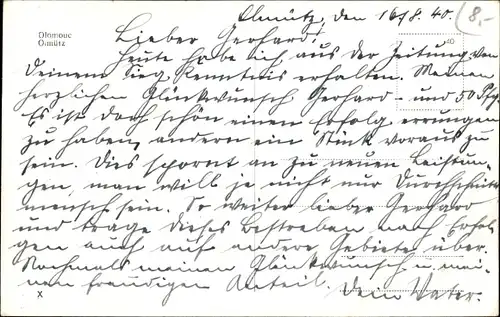 Olomouc
Olmütz
Olmütz, den 16/8. 40.
8,-
40
Lieber Gerhard!
Heute habe ich aus der Zeitung von
Deinem Sieg Kenntnis erhalten. Meinen
herzlichen Glückwunsch Gerhard - und 50 Pfg.
Es ist doch schön einen Erfolg errungen
zu haben, andern ein Stück voraus zu
sein. Dies spornt an zu neuen Leistun-
gen, man will ja nicht nur Durchschnitts
mensch sein. So weiter lieber Gerhard
und trage dieses Bestreben nach Erfol-
gen auch auf andere Gebiete über.
Nochmals meinen Glückwunsch u. mei-
nen freudigen Anteil. Dein Vater.
X